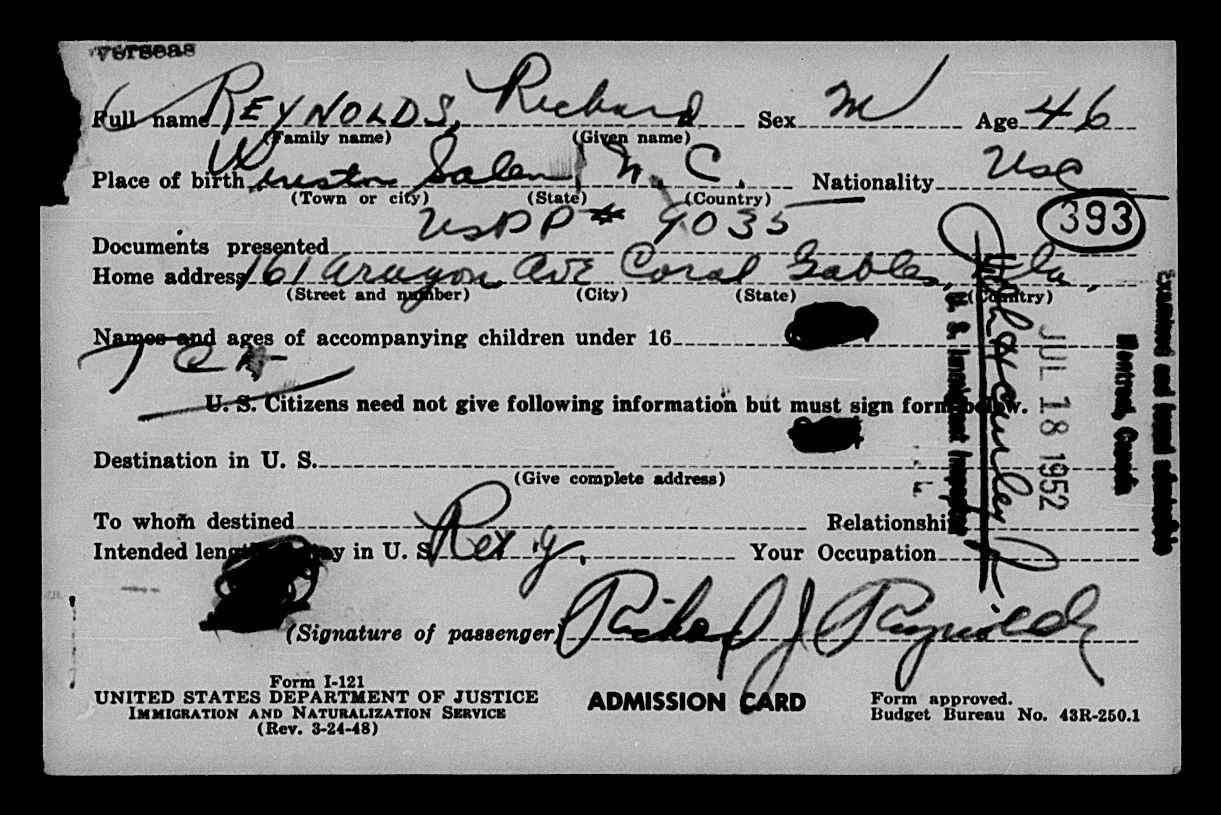 verseas
Full name REYNOLDS, Richard Sex M Age 46
(Family name) (Given name)
Place of birth Winston Salem, N. C. Nationality USC
(Town or city) (State) (Country)
393
Documents presented USPP# 9035
Home address 161 Aragon Ave Coral Gables, Fla.
(Street and number) (City) (State) (Country)
Names and ages of accompanying children under 16
TCA
U. S. Citizens need not give following information but must sign form below.
Destination in U. S.
(Give complete address)
To whom destined Relationship
Intended length of stay in U. S. Your Occupation
(Signature of passenger) Richard J Reynolds
Form I-121
UNITED STATES DEPARTMENT OF JUSTICE
IMMIGRATION AND NATURALIZATION SERVICE
(Rev. 3-24-48)
ADMISSION CARD
Form approved.
Budget Bureau No. 43R-250.1
Examined and found admissible
Montreal, Canada
JUL 18 1952
U. S. Immigrant Inspector